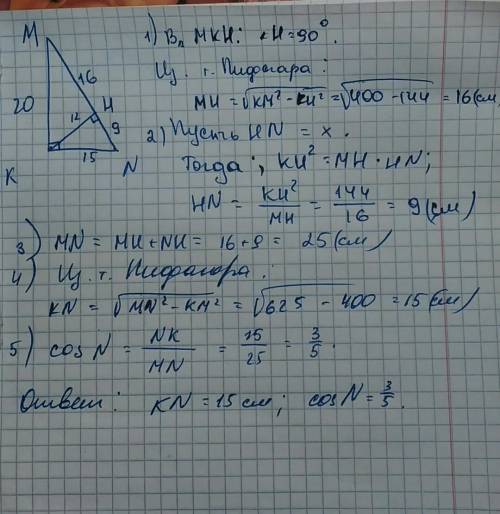 M
16
20
12
H
9
15
K
N
1) В △ MKH: ∠H = 90°.
Из. т. Пифагора:
MH = √KM² - KH² = √400 - 144 = 16 (см)
2) Пусть HN = x.
Тогда:, KH² = MH · HN;
HN = KH²/MH = 144/16 = 9 (см)
3) MN = MH + NH = 16 + 9 = 25 (см)
4) Из. т. Пифагора:
KN = √MN² - KM² = √625 - 400 = 15 (см)
5) cos N = NK/MN = 15/25 = 3/5.
Ответ: KN = 15 см; cos N = 3/5.